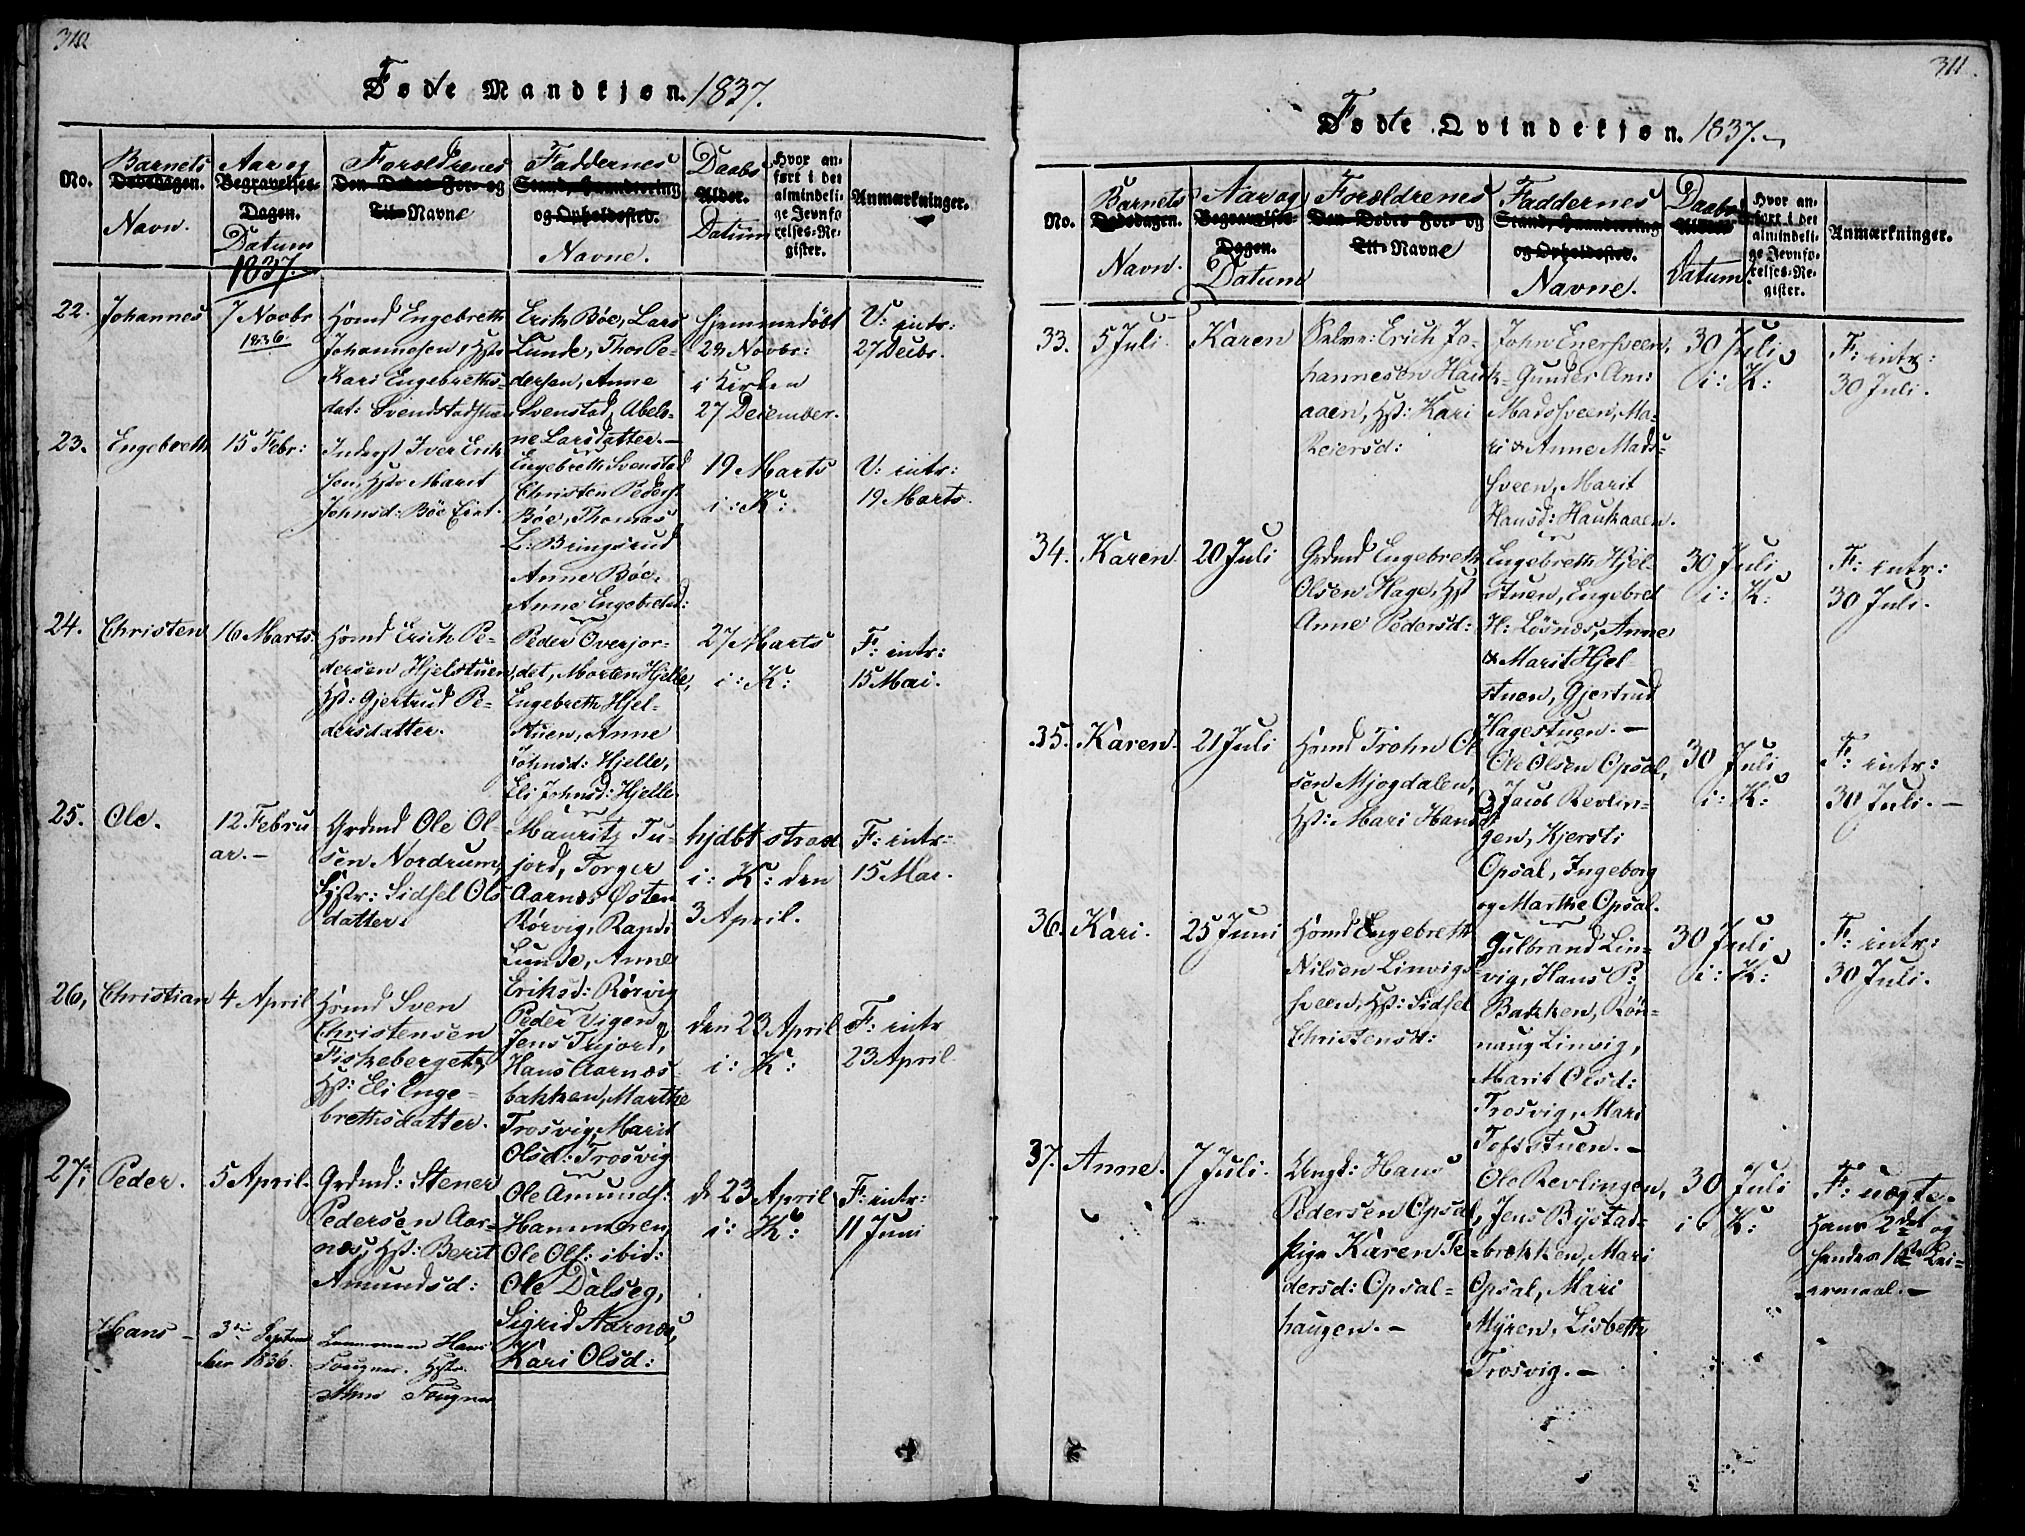 310
Føde Mandkjøn. 1837.
No.
Barnets
Dødsdagen.
Navn.
Aar og
Begravelses-
Dagen.
Datum
1837.
Forældrenes
Den Dødes For- og
Til-Navne
Faddernes
Stand, Haandtering
og Opholdssted.
Navne.
Daabs
Alder.
Datum
Hvor an-
ført i det
almindeli-
ge Jevnfø
relses-Re-
gister.
Anmærkninger.
22.
Johannes
7 Novbr
1836.
Hømd Engebreth
Johannesen, Hst:
Kari Engebreths-
dat:
Erik Böe, Lars
Lunde, Thor Pe-
dersen, Anne
Svenstad, Abelo-
ne Larsdatter.—
hjemmedöbt
28 Novbr:
i Kirken
27 December.
V: intr:
27 Decbr.
23.
Engebreth
15 Febr:
Inderst Iver Erik
sen, Hst: Marit
Johnsd: Böe Eiet.
Engebreth Svenstad
Christen Peders:
Böe, Thomas
L: Bringsrud
Anne Böe,
Anne Engebretsd:
19 Marts
i: K:
V: intr:
19 Marts.
24.
Christen
16 Marts:
Hømd Erich Pe-
dersen Hjelstuen,
Hst: Gjertrud Pe-
dersdatter.
Peder Overjor-
det, Morten Hjelle,
Engebreth Hjel-
stuen, Anne
Johnsd: Hjelle,
Eli Johnsd: Hjelle
27 Marts
i: K:
F: intr:
15 Mai.
25.
Ole.
12 Febru
ar.—
Grdmd Ole Ol-
sen Nordrum,
Hstr: Sidsel Ols
datter.
Mauritz Tu-
jord, Torger
Aarnes Østen
Rörvig, Randi
Lunde, Anne
Eriksd: Rörvig
hjdbt strax
i: K: den
3 April.
F: intr:
15 Mai.
26,
Christian
4 April
Hømd Sven
Christensen
Fiskeberget,
Hst: Eli Enge-
brethsdatter.
Peder Vigen,
Jens Tujord,
Hans Aarnæs-
bakken, Marthe
Trosvig, Marit
Olsd: Trosvig
den 23 April
i: K:
F: intr
23 April.
27.
Peder.
5 April.
Grdmd: Stener
Pedersen Aar-
næs, Hst: Berit
Amundsd:
Ole Amunds:
Hammeren,
Ole Ols: ibid:
Ole Dalseg,
Sigrid Aarnæs,
Kari Olsd:
d 23 April
i: K:
F: intr:
11 Juni
Hans —
3 Septem
ber 1836.
Lensmann Hans
Fougner. Hstr.
Fougner
311.
Føde Qvindekjøn. 1837.
No.
Barnets
Dødsdagen.
Navn.
Aar og
Begravelses-
Dagen.
Datum
Forældrenes
Den Dødes For- og
Til-Navne
Faddernes
Stand, Haandtering
og Opholdssted.
Navne.
Daabs
Alder
Datum.
Hvor an-
ført i det
almindeli-
ge Jevnfø-
relses-Re-
gister.
Anmærkninger.
33.
5 Juli.
Karen
Erich Jo-
hannesen Hauk-
aaen, Hst: Kari
Reiersd:
John Enersveen,
Gunder Am:
Madssveen, Ma-
ri & Anne Mads-
sveen, Marit
Hansd: Haukaaen.
30 Juli
i: K:
F: intr:
30 Juli.
34.
Karen
20 Juli
Grdmd Engebreth
Olsen Hage, Hst
Anne Pedersd:
Engebreth Hjel-
stuen, Engebret
H: Lösnæs, Anne
& Marit Hjel
stuen, Gjertrud
Hagestuen.—
30 Juli
i: K:
F: intr:
30 Juli.
35.
Karen
21 Juli
Hømd Trohn Ol
sen Mjogdalen,
Hst: Mari Hansd
Ole Olsen Opsal,
Jacob Revlin-
gen, Kjersti
Opsal, Ingeborg
og Marthe Opsal.
30 Juli
i: K:
F: intr:
30 Juli.—
36.
Kari.
25 Juni
Hømd Engebreth
Nilsen Linvigs-
sveen, Hst: Sidsel
Christensd:
Gulbrand Lin-
vig, Hans P:
Bakken, Rön-
naug Linvig,
Marit Olsd:
Trosvig, Mari
Toftstuen.—
30 Juli
i: K:
F: intr:
30 Juli.
37.
Anne.
7 Juli.
Ungk: Hans
Pedersen Opsal,
Pige Karen Pe-
dersd: Opsal-
haugen.—
Ole Revlingen,
Jens Bÿstad-
brekken, Mari
Opsal, Mari
Mÿren, Lisbeth
Trosvig.—
30 Juli
i: K:
F: uægte.
Hans 2det og
hendes 1ste Lei-
ermaal.—